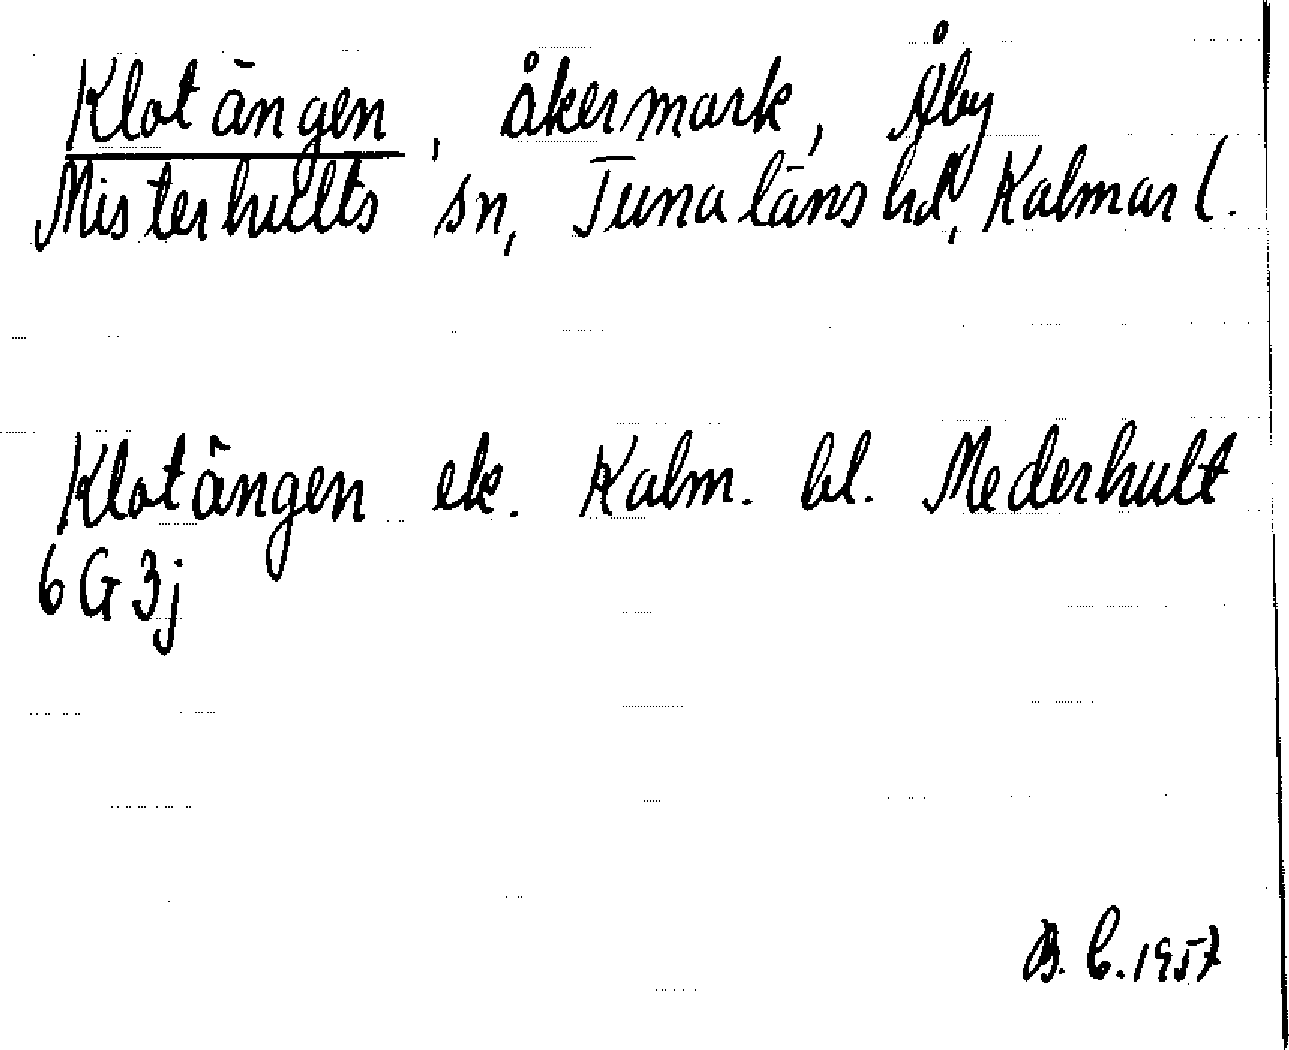 Klotängen, åkermark, Åby
Misterhults sn, Tunaläns hd, Kalmar l.
Klotängen ek. Kalm. bl. Mederhult
6G3j
B. C. 1957